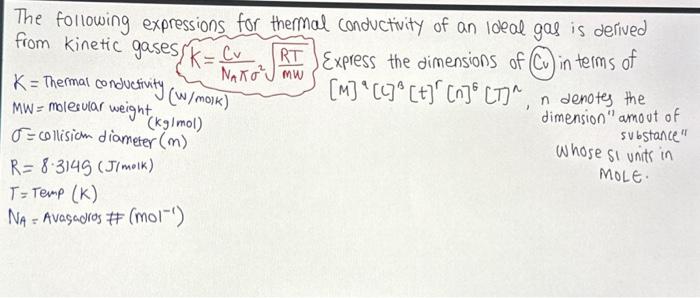 The following expressions for thermal conductivity of an ideal gas is derived
from kinetic gases K = Cv / NAπσ² √RT/MW Express the dimensions of Cv in terms of
[M]^α [L]^β [t]^γ [n]^δ [T]^n, n denotes the
dimension "amout of
substance"
whose si units in
MOLE.
K = Thermal conductivity (W/molK)
MW = molecular weight (kg/mol)
σ = collision diameter (m)
R = 8.3145 (J/molK)
T = Temp (K)
NA = Avagadros # (mol⁻¹)